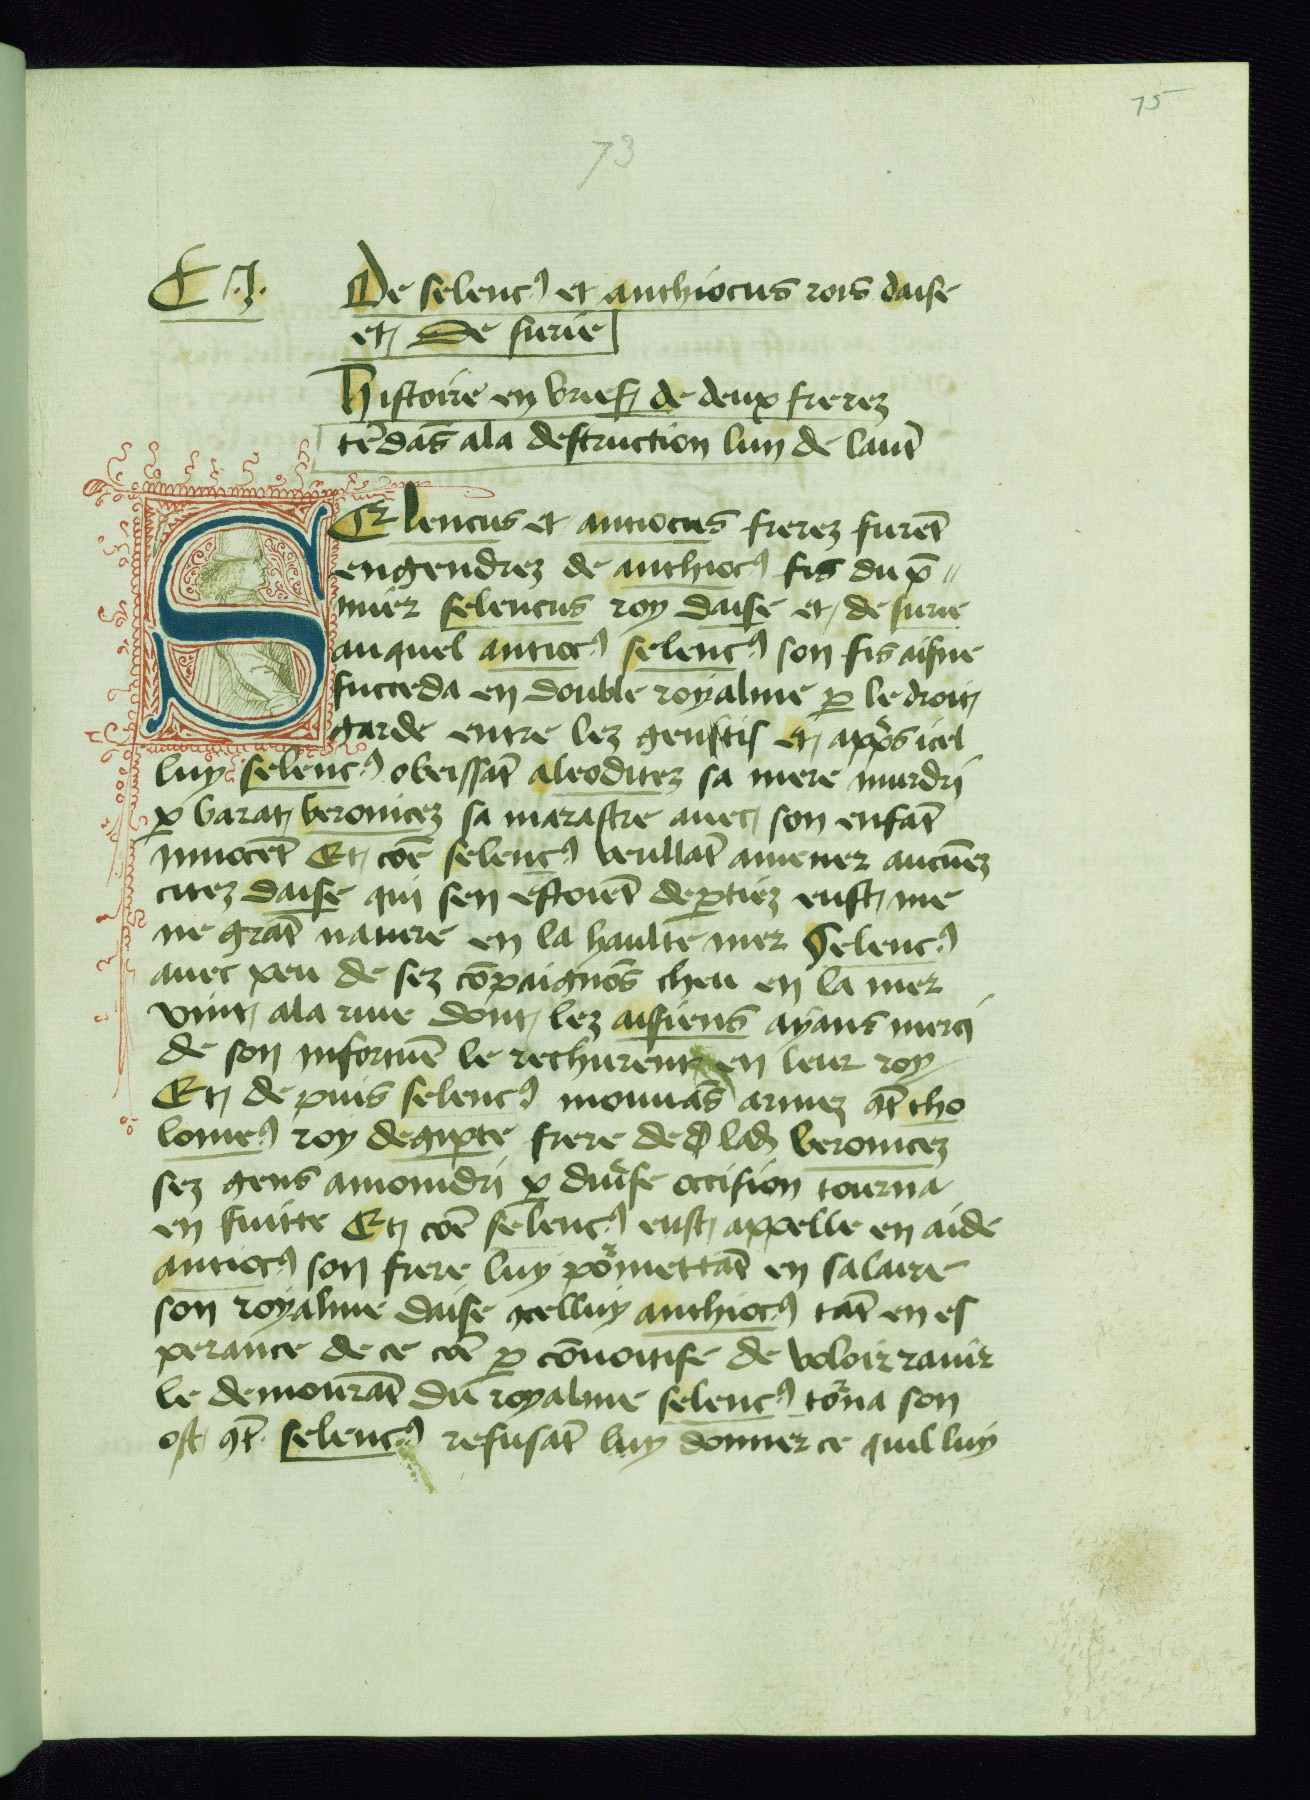 75
73
C .J. De selencꝰ et anthiocus rois daise
et de surie
Histoire en brief de deux frerez
tēdās ala destruction lun de lautͤ
SElencus et antiocus frerez furēt
engendrez de anthiocꝰ fis du p̄ //
mier selencus roy daise et de surie
auquel antiocꝰ selencꝰ son fis aisne
succeda en double royalme ꝑ le droit
garde entre lez gentis et app̄s icel
luy selencꝰ obeissāt aleoditez sa mere murdri
ꝑ barat beronicez sa marastre auec son enfāt
innocēt Et cōe selencꝰ veullāt amener aucūez
citez daise qui sen estoiēt deꝑtiez eust me
ne grāt nauere en la haulte mer Selencꝰ
auec peu de sez cōpaignōs cheu en la mer
vint ala riue dont lez aisiens ayans merci
de son infortuē le rechurent en leur roy
Et de puis selencꝰ mouuās armez 9t̄ tho
lomeꝰ roy degipte frere de lad beronicez
sez gens amonidri ꝑ diuʳse occision tourna
en fuitte Et cōe selencꝰ eust appelle en aide
antiocꝰ son frere luy poʳmettāt en salaire
son royalme daise icelluy anthiocꝰ tāt en es
perance de ce cōe ꝑ cōuoitise de voloir rauir
le demourāt du royalme selencꝰ toʳna son
ost 9t̄ selencꝰ refusāt luy donner ce quil luy